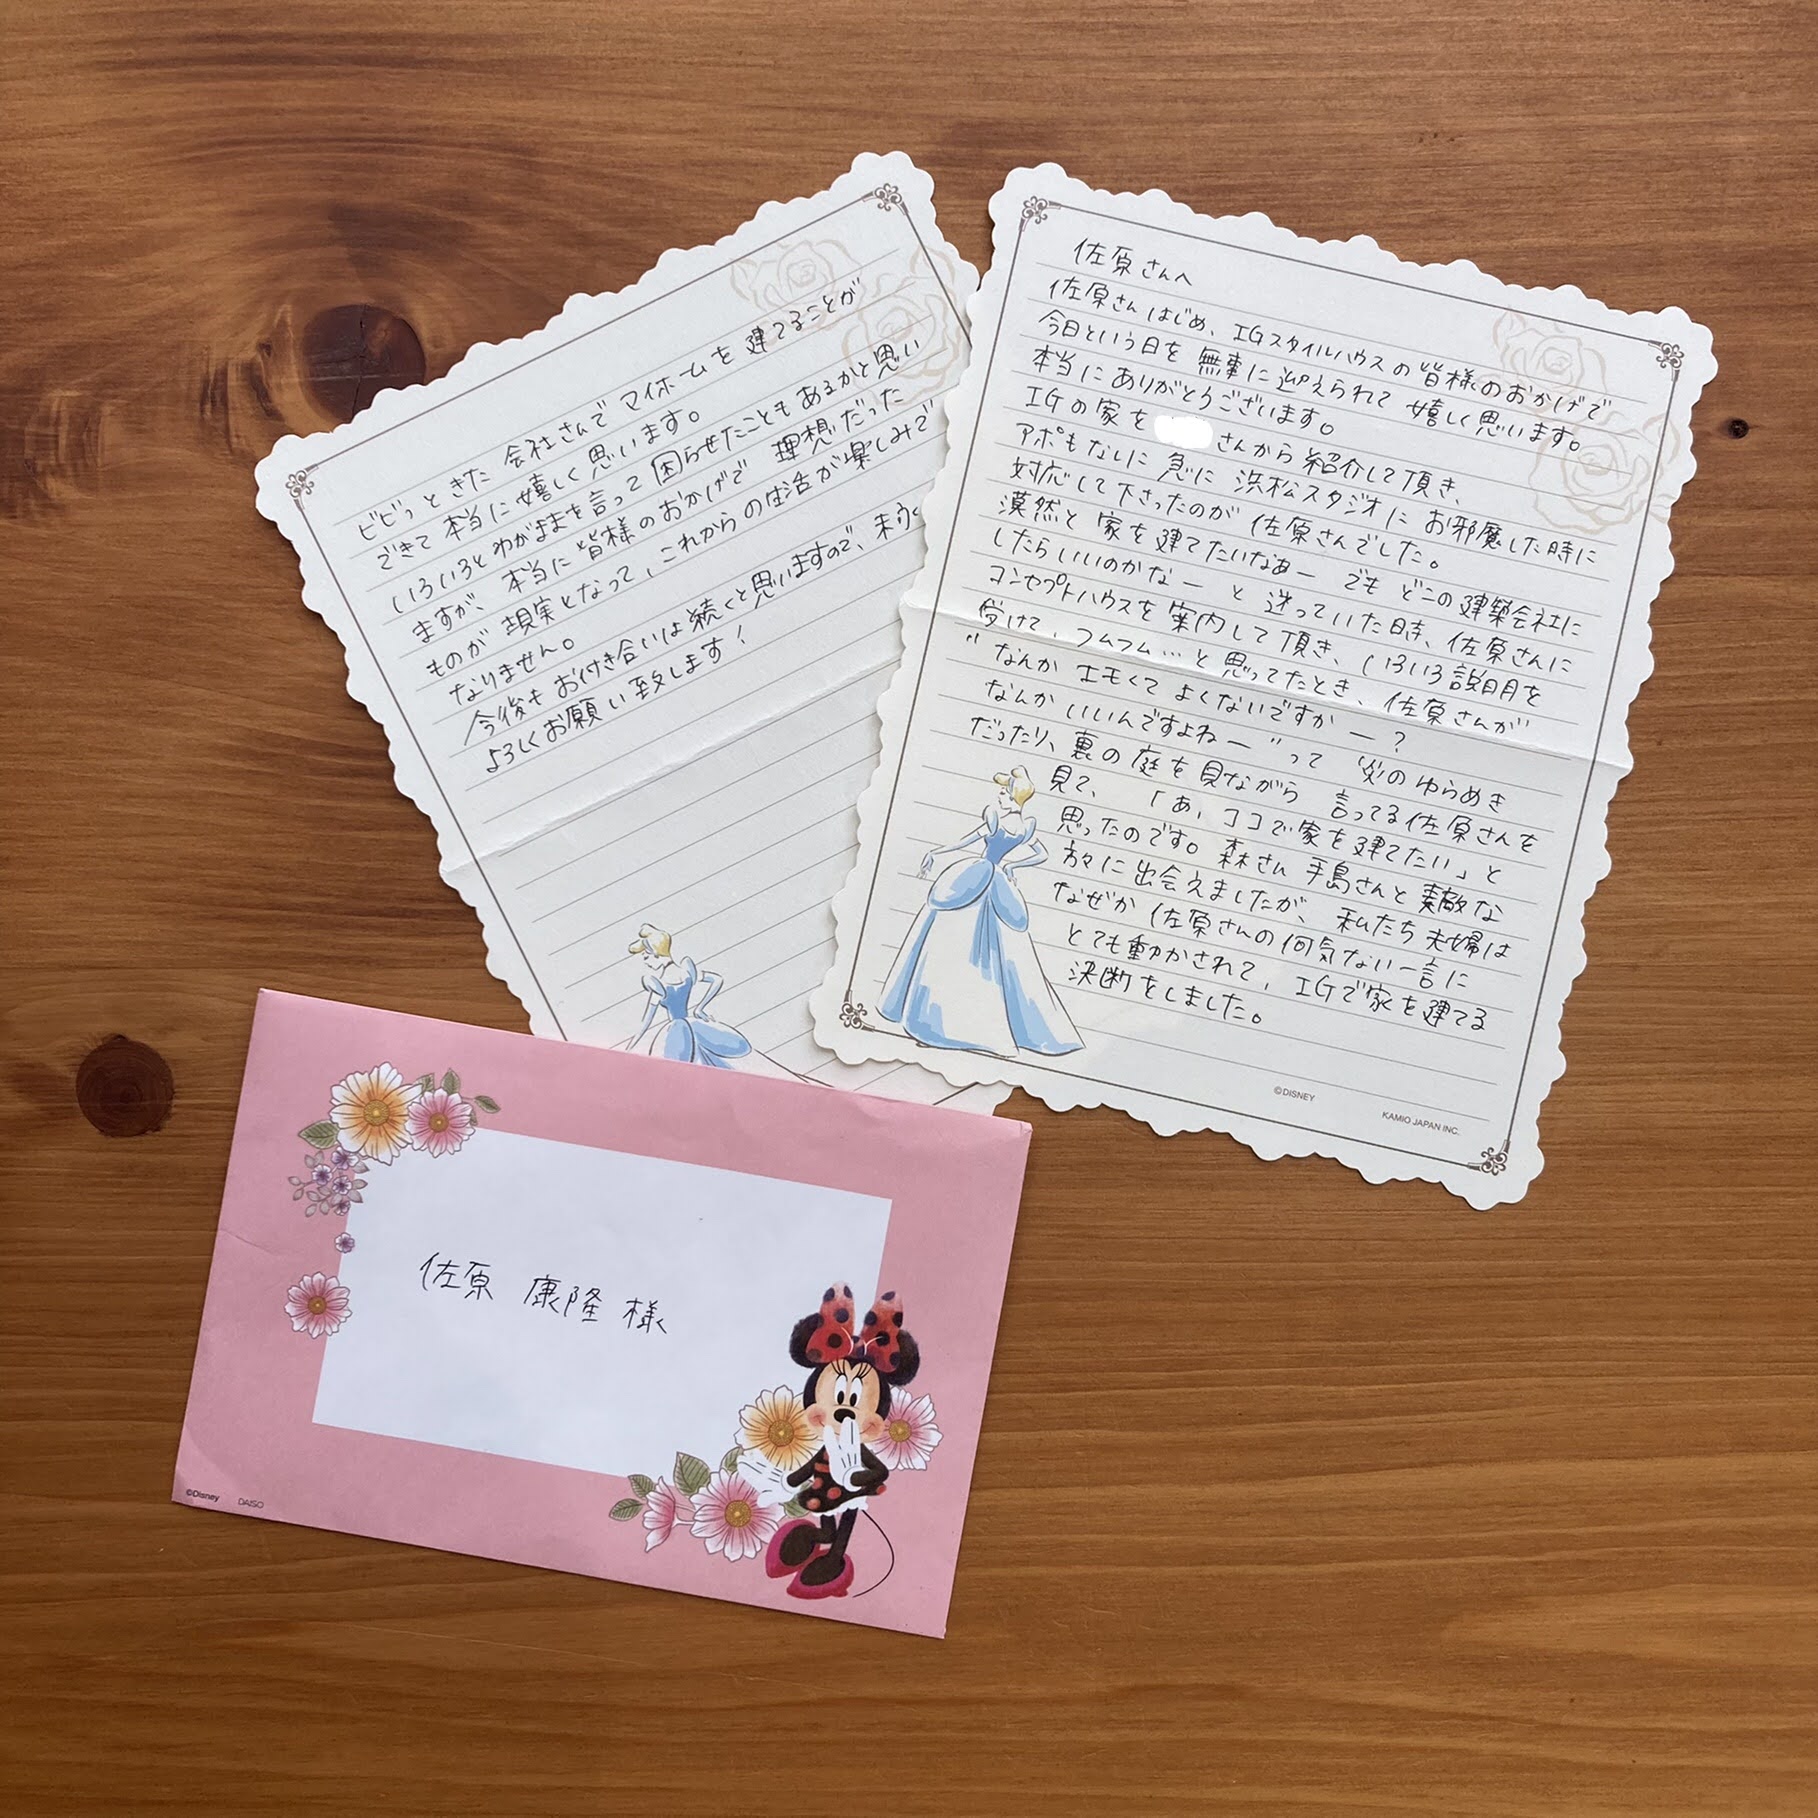 佐原さんへ
佐原さんはじめ、IGスタイルハウスの皆様のおかげで
今日という日を無事に迎えられて嬉しく思います。
本当にありがとうございます。
IGの家を さんから紹介して頂き、
アポもなしに急に浜松スタジオにお邪魔した時に
対応して下さったのが佐原さんでした。
漠然と家を建てたいなぁー でも どこの建築会社に
したらいいのかなー と迷っていた時、佐原さんに
コンセプトハウスを案内して頂き、いろいろ説明を
受けて、フムフム…と思ってたとき、佐原さんが
"なんかエモくてよくないですかー?
なんかいいんですよねー"って 炎のゆらめき
だったり、裏の庭を見ながら 言ってる佐原さんを
見て、「あ、ココで家を建てたい」と
思ったのです。森さん 手島さんと素敵な
方々に出会えましたが、私たち夫婦は
なぜか佐原さんの何気ない一言に
とても動かされて、IGで家を建てる
決断をしました。
©DISNEY
KAMIO JAPAN INC.
ビビッときた 会社さんで マイホームを 建てることが
できて本当に嬉しく思います。
いろいろとわがままを言って困らせたこともあるかと思い
ますが、本当に皆様のおかげで 理想だった
ものが現実となって、これからの生活が楽しみで
なりません。
今後もお付き合いは続くと思いますので、末永く
よろしくお願い致します!
佐原 康隆 様
©Disney DAISO